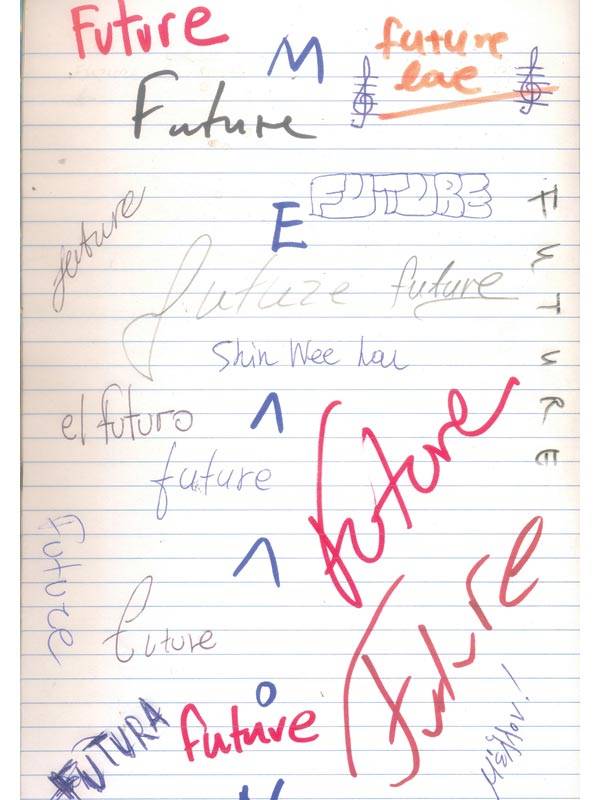 Future
future
lae
Future
FUTURE
future
future
future
FUTURE
Shin Wee Lau
el futuro
future
future
future
future
future
FUTURA
future
Μέλλον!
ΜΕΛΛΟΝ